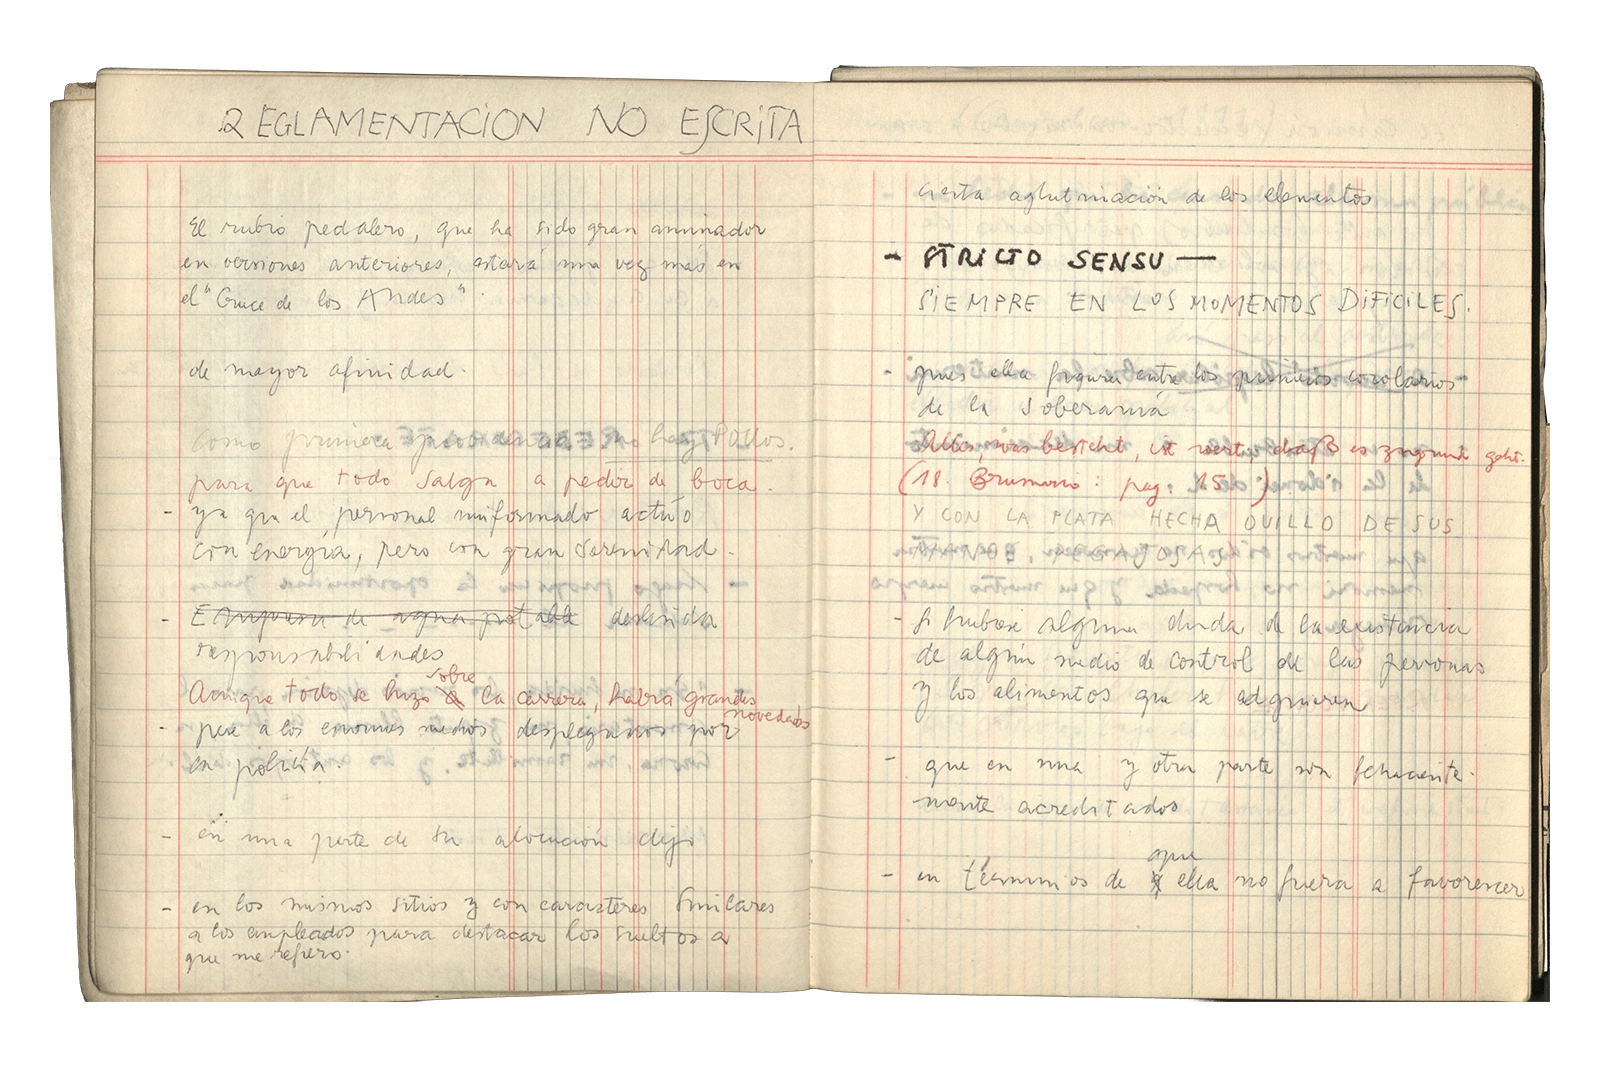 REGLAMENTACION NO ESCRITA
El rubio pedalero, que ha sido gran animador
en versiones anteriores, estará una vez más en
el "Cruce de los Andes".
de mayor afinidad.
Como primera no hay Pollos.
para que todo salga a pedir de boca.
- ya que el personal uniformado actuó
con energía, pero con gran serenidad.
- Empresa de agua potable deslinda
responsabilidades
Aunque todo se hizo sobre la carrera, habrá grandes
novedades
- pese a los enormes medios desplegados por
en policía.
- en una parte de su alocución dijo
- en los mismos sitios y con caracteres similares
a los empleados para destacar los sueltos a
que me refiero.
- cierta aglutinación de los elementos
- STRICTO SENSU —
SIEMPRE EN LOS MOMENTOS DIFICILES.
- pues ella figura entre los primeros corolarios
de la soberanía
Alles, was besteht, ist wert, daß es zugrunde geht.
(18. Brumario: pag. 15)
Y CON LA PLATA HECHA OVILLO DE SUS
- Si hubiese alguna duda de la existencia
de algún medio de control de las personas
y los alimentos que se adquieren
- que en una y otra parte son fehaciente-
mente acreditados
que
- en términos de ella no fuera a favorecer